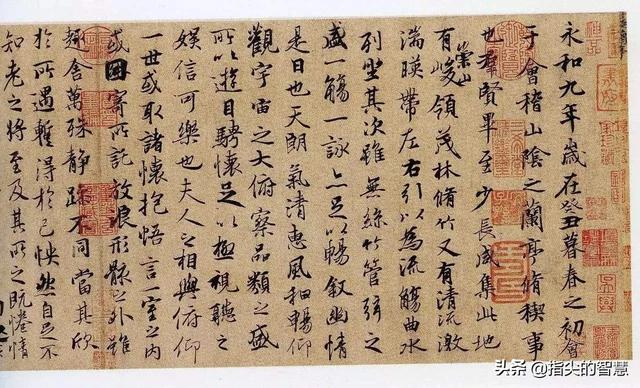 永和九年歲在癸丑暮春之初會
于會稽山陰之蘭亭脩稧事
也羣賢畢至少長咸集此地
有崇山峻領茂林脩竹又有清流激
湍暎帶左右引以為流觴曲水
列坐其次雖無絲竹管弦之
盛一觴一詠亦足以暢叙幽情
是日也天朗氣清惠風和暢仰
觀宇宙之大俯察品類之盛
所以遊目騁懷足以極視聽之
娛信可樂也夫人之相與俯仰
一世或取諸懷抱悟言一室之內
或因寄所託放浪形骸之外雖
趣舍萬殊靜躁不同當其欣
於所遇蹔得於己怏然自足不
知老之將至及其所之既惓情
头条 @指尖的智慧